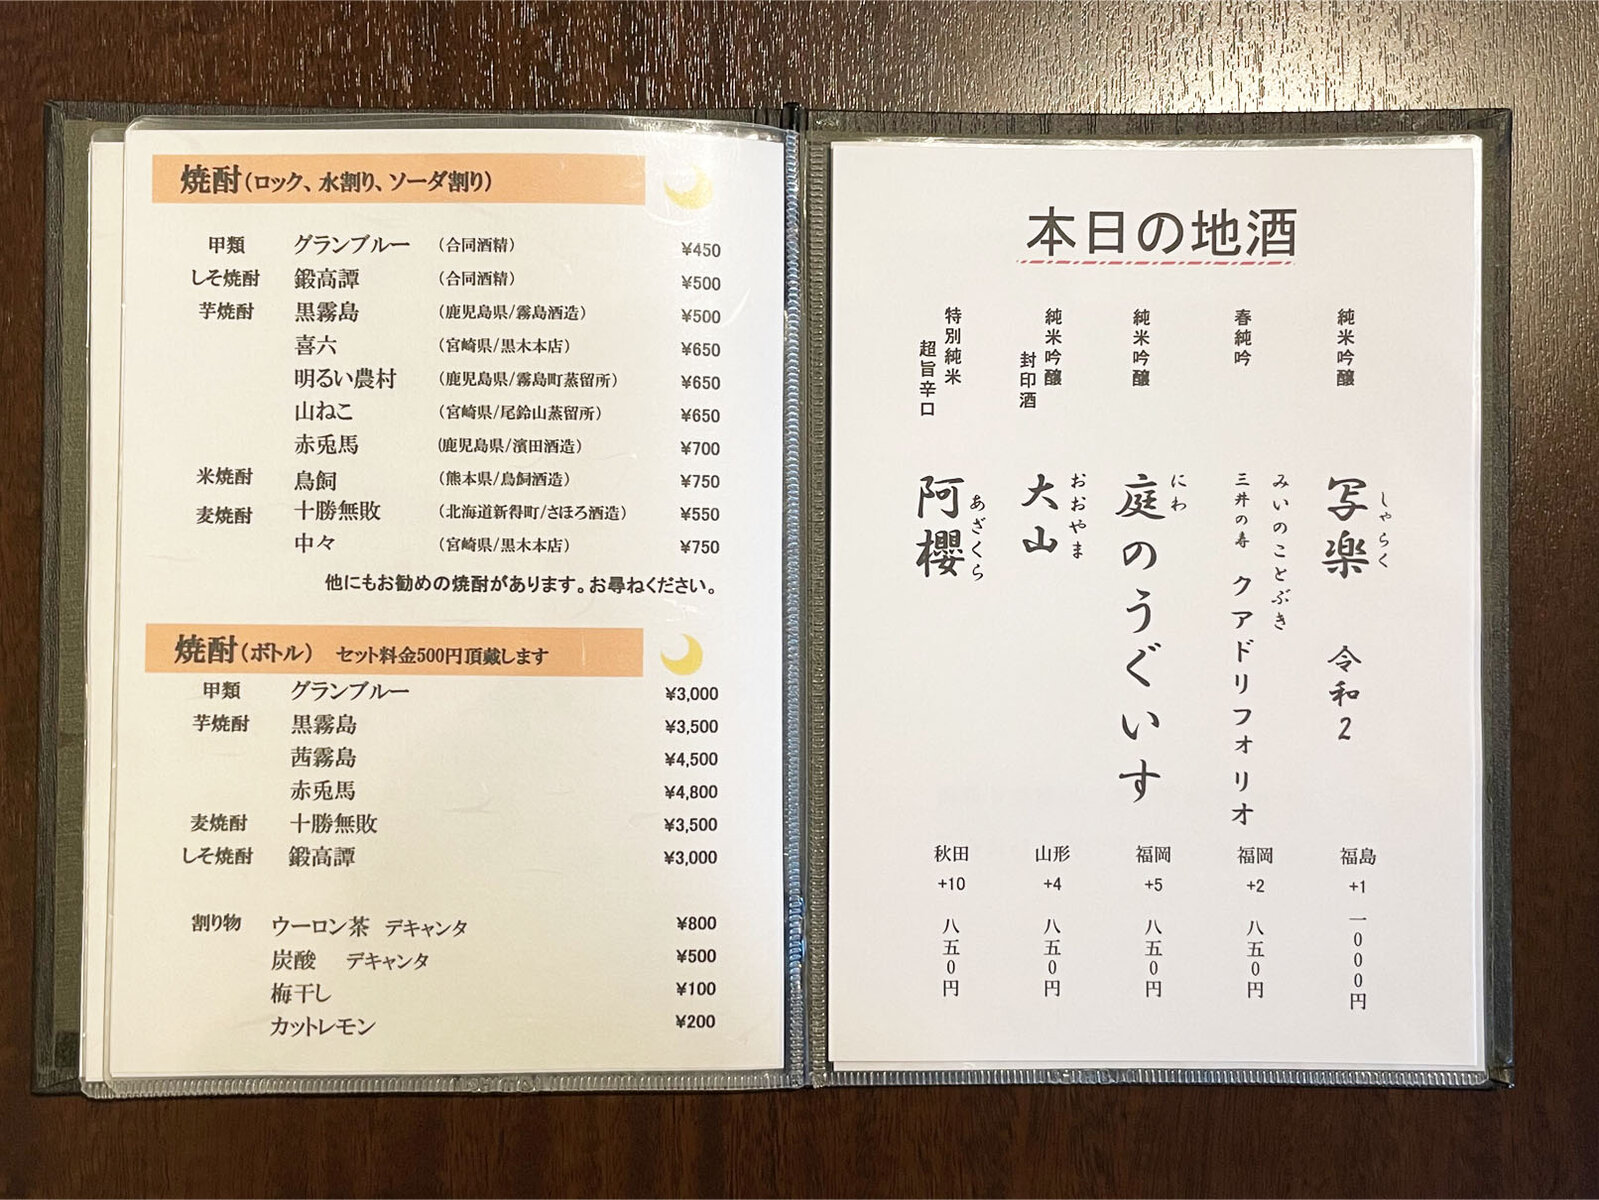 焼酎(ロック、水割り、ソーダ割り)
甲類 グランブルー (合同酒精) ¥450
しそ焼酎 鍛高譚 (合同酒精) ¥500
芋焼酎 黒霧島 (鹿児島県/霧島酒造) ¥500
喜六 (宮崎県/黒木本店) ¥650
明るい農村 (鹿児島県/霧島町蒸留所) ¥650
山ねこ (宮崎県/尾鈴山蒸留所) ¥650
赤兎馬 (鹿児島県/濱田酒造) ¥700
米焼酎 鳥飼 (熊本県/鳥飼酒造) ¥750
麦焼酎 十勝無敗 (北海道新得町/さほろ酒造) ¥550
中々 (宮崎県/黒木本店) ¥750
他にもお勧めの焼酎があります。お尋ねください。
焼酎(ボトル) セット料金500円頂戴します
甲類 グランブルー ¥3,000
芋焼酎 黒霧島 ¥3,500
茜霧島 ¥4,500
赤兎馬 ¥4,800
麦焼酎 十勝無敗 ¥3,500
しそ焼酎 鍛高譚 ¥3,000
割り物 ウーロン茶 デキャンタ ¥800
炭酸 デキャンタ ¥500
梅干し ¥100
カットレモン ¥200
本日の地酒
純米吟醸
しゃらく
写楽 令和2
福島
+1
一000円
春純吟
みいのことぶき
三井の寿 クアドリフォリオ
福岡
+2
八五0円
純米吟醸
にわ
庭のうぐいす
福岡
+5
八五0円
純米吟醸
封印酒
おおやま
大山
山形
+4
八五0円
特別純米
超旨辛口
あざくら
阿櫻
秋田
+10
八五0円